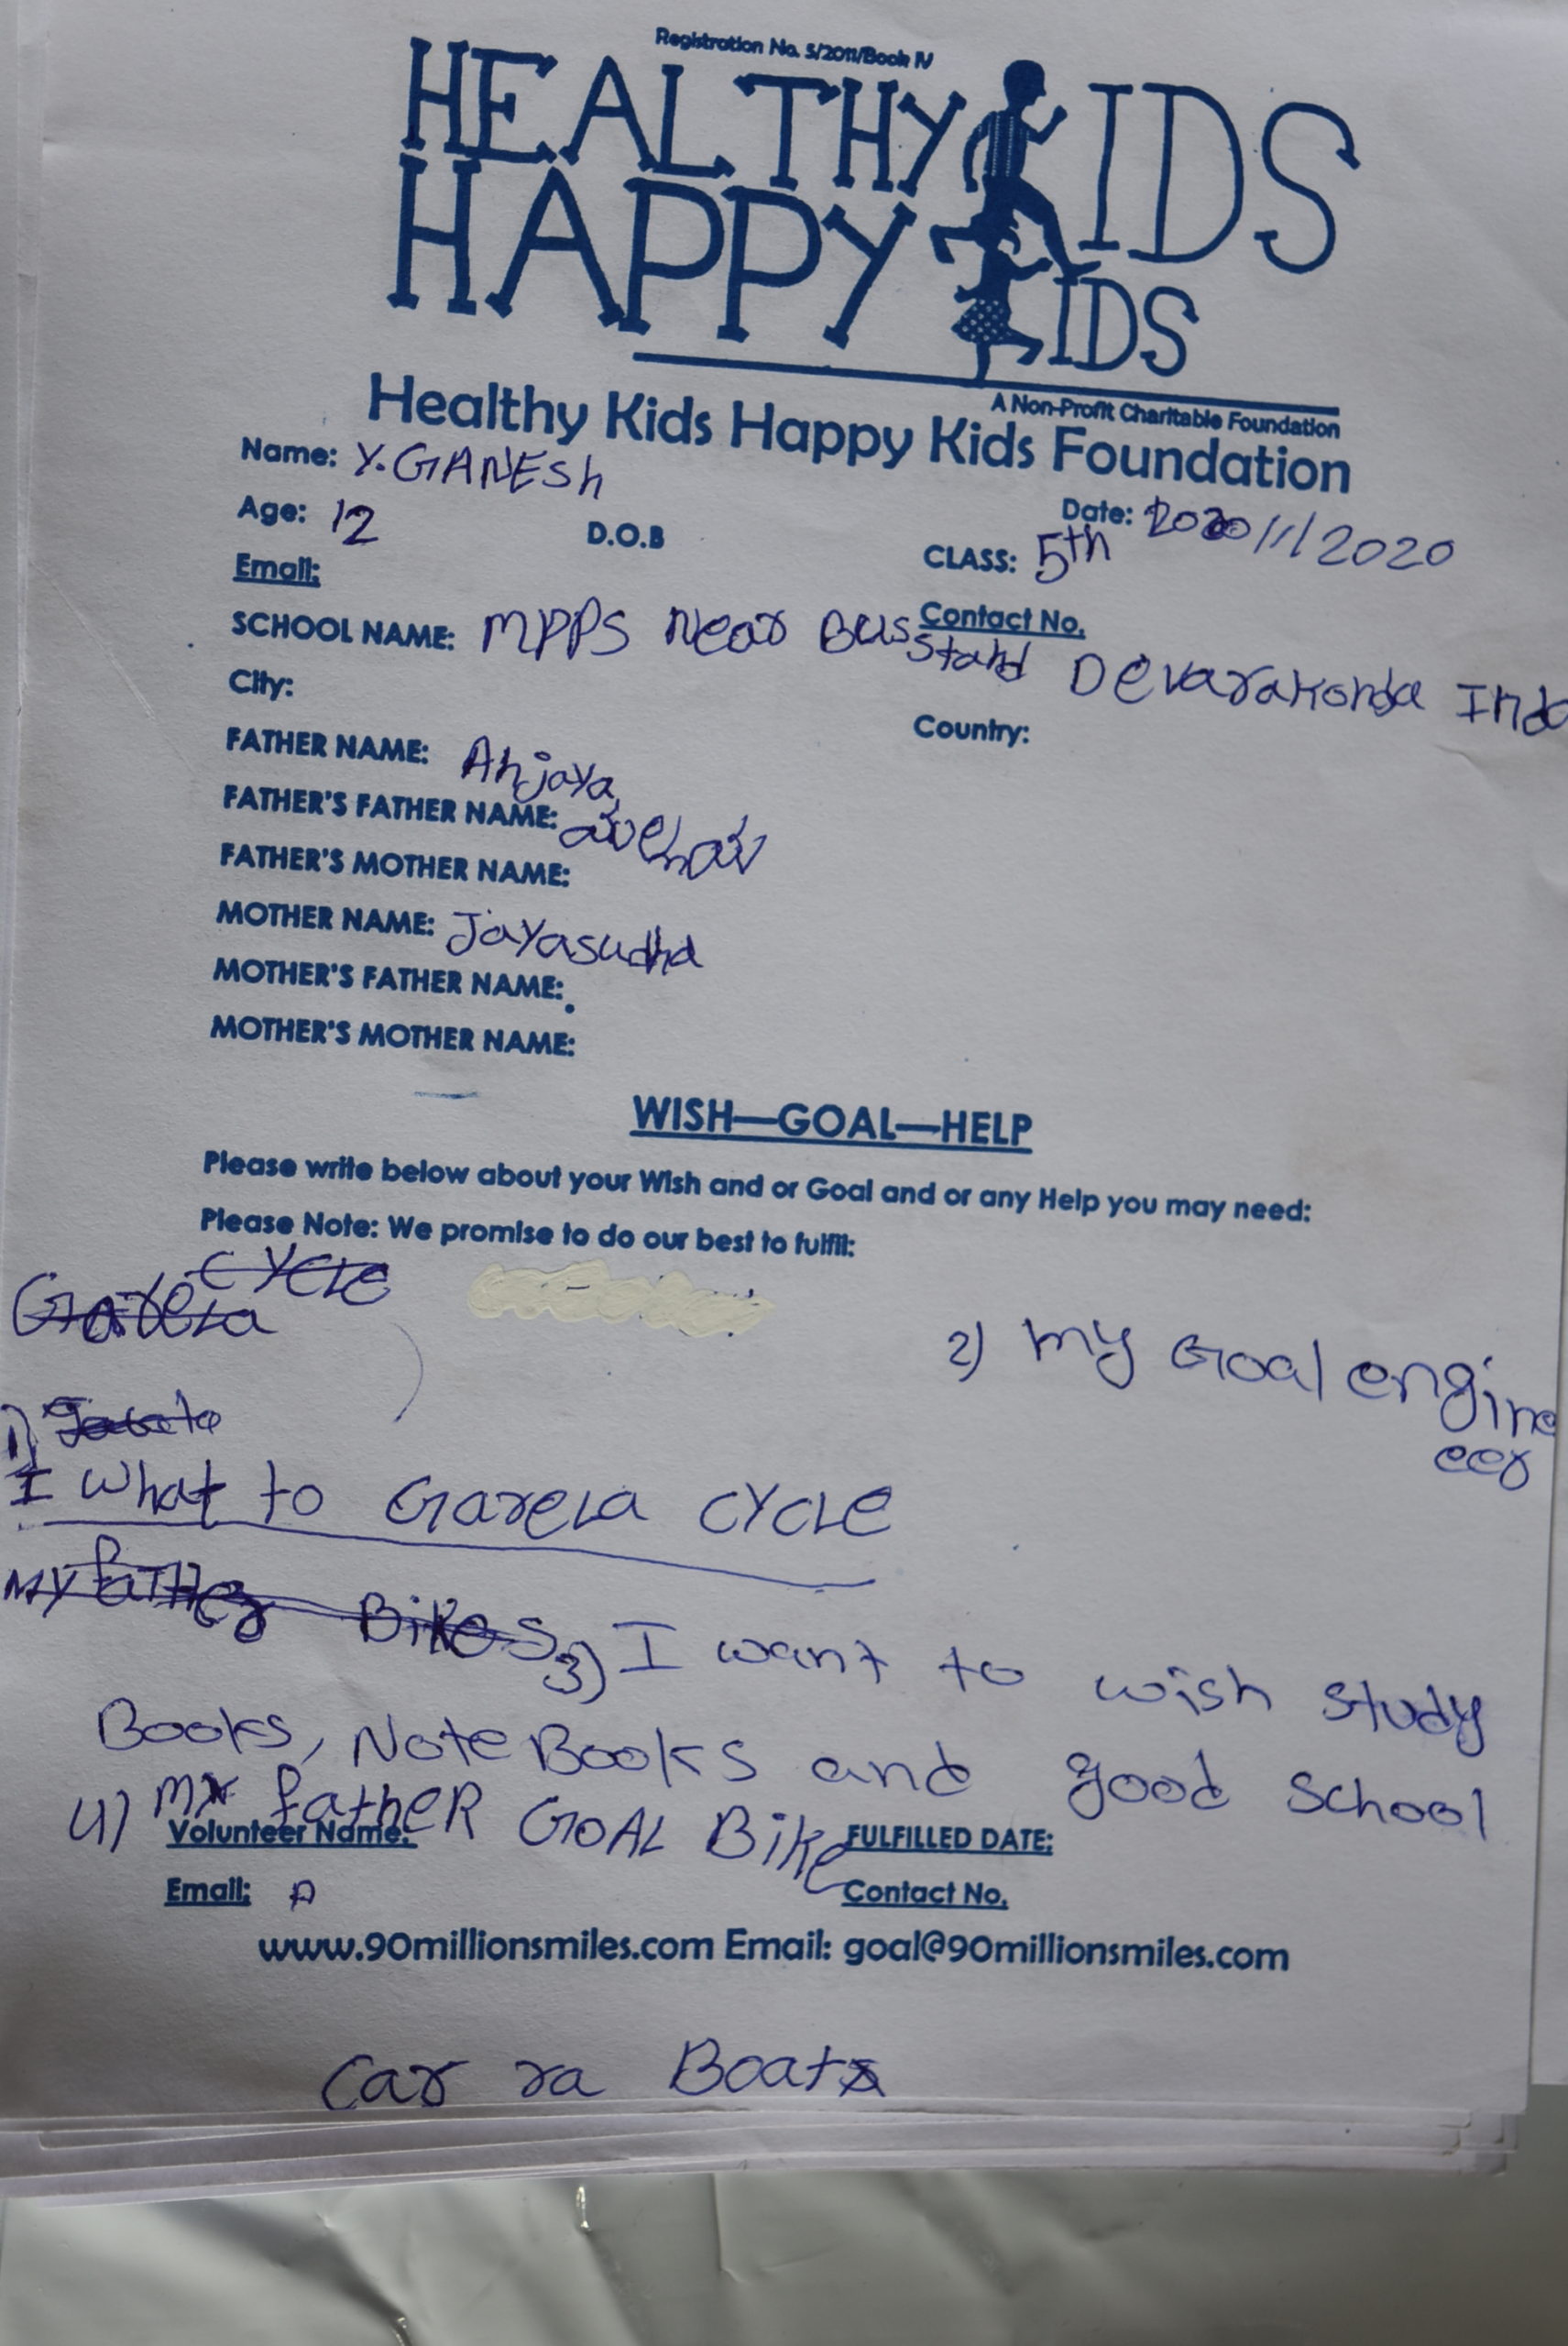 Registration No. 5/2011/Book IV
HEALTHY KIDS
HAPPY KIDS
A Non-Profit Charitable Foundation
Healthy Kids Happy Kids Foundation
Name: Y.GANESh
Date: 2020/11/2020
Age: 12 D.O.B CLASS: 5th
Email: Contact No.
SCHOOL NAME: MPPS Near Bus Stand Devarakonda
City: Country:
FATHER NAME: Anjaya
FATHER'S FATHER NAME:
FATHER'S MOTHER NAME:
MOTHER NAME: Jayasudha
MOTHER'S FATHER NAME:
MOTHER'S MOTHER NAME:
WISH—GOAL—HELP
Please write below about your Wish and or Goal and or any Help you may need:
Please Note: We promise to do our best to fulfil:
CYCLE
Garela
2) my Goal engine
eer
1)
I what to Garela CYCLE
My father Bikes
3) I want to wish study
Books, Note Books and good school
4) my father GOAL Bike
Volunteer Name: FULFILLED DATE:
Email: Contact No.
www.90millionsmiles.com Email: goal@90millionsmiles.com
Car ra Boats